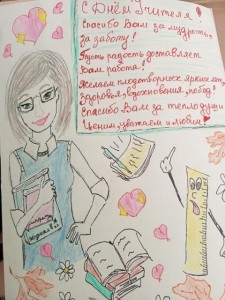 С Днём Учителя!
Спасибо Вам за мудрость,
за заботу!
Пусть радость доставляет
Вам работа!
Желаем плодотворных ярких лет,
Здоровья, вдохновения, побед!
Спасибо Вам за теплоту души
Ценим, уважаем и любим
журнал